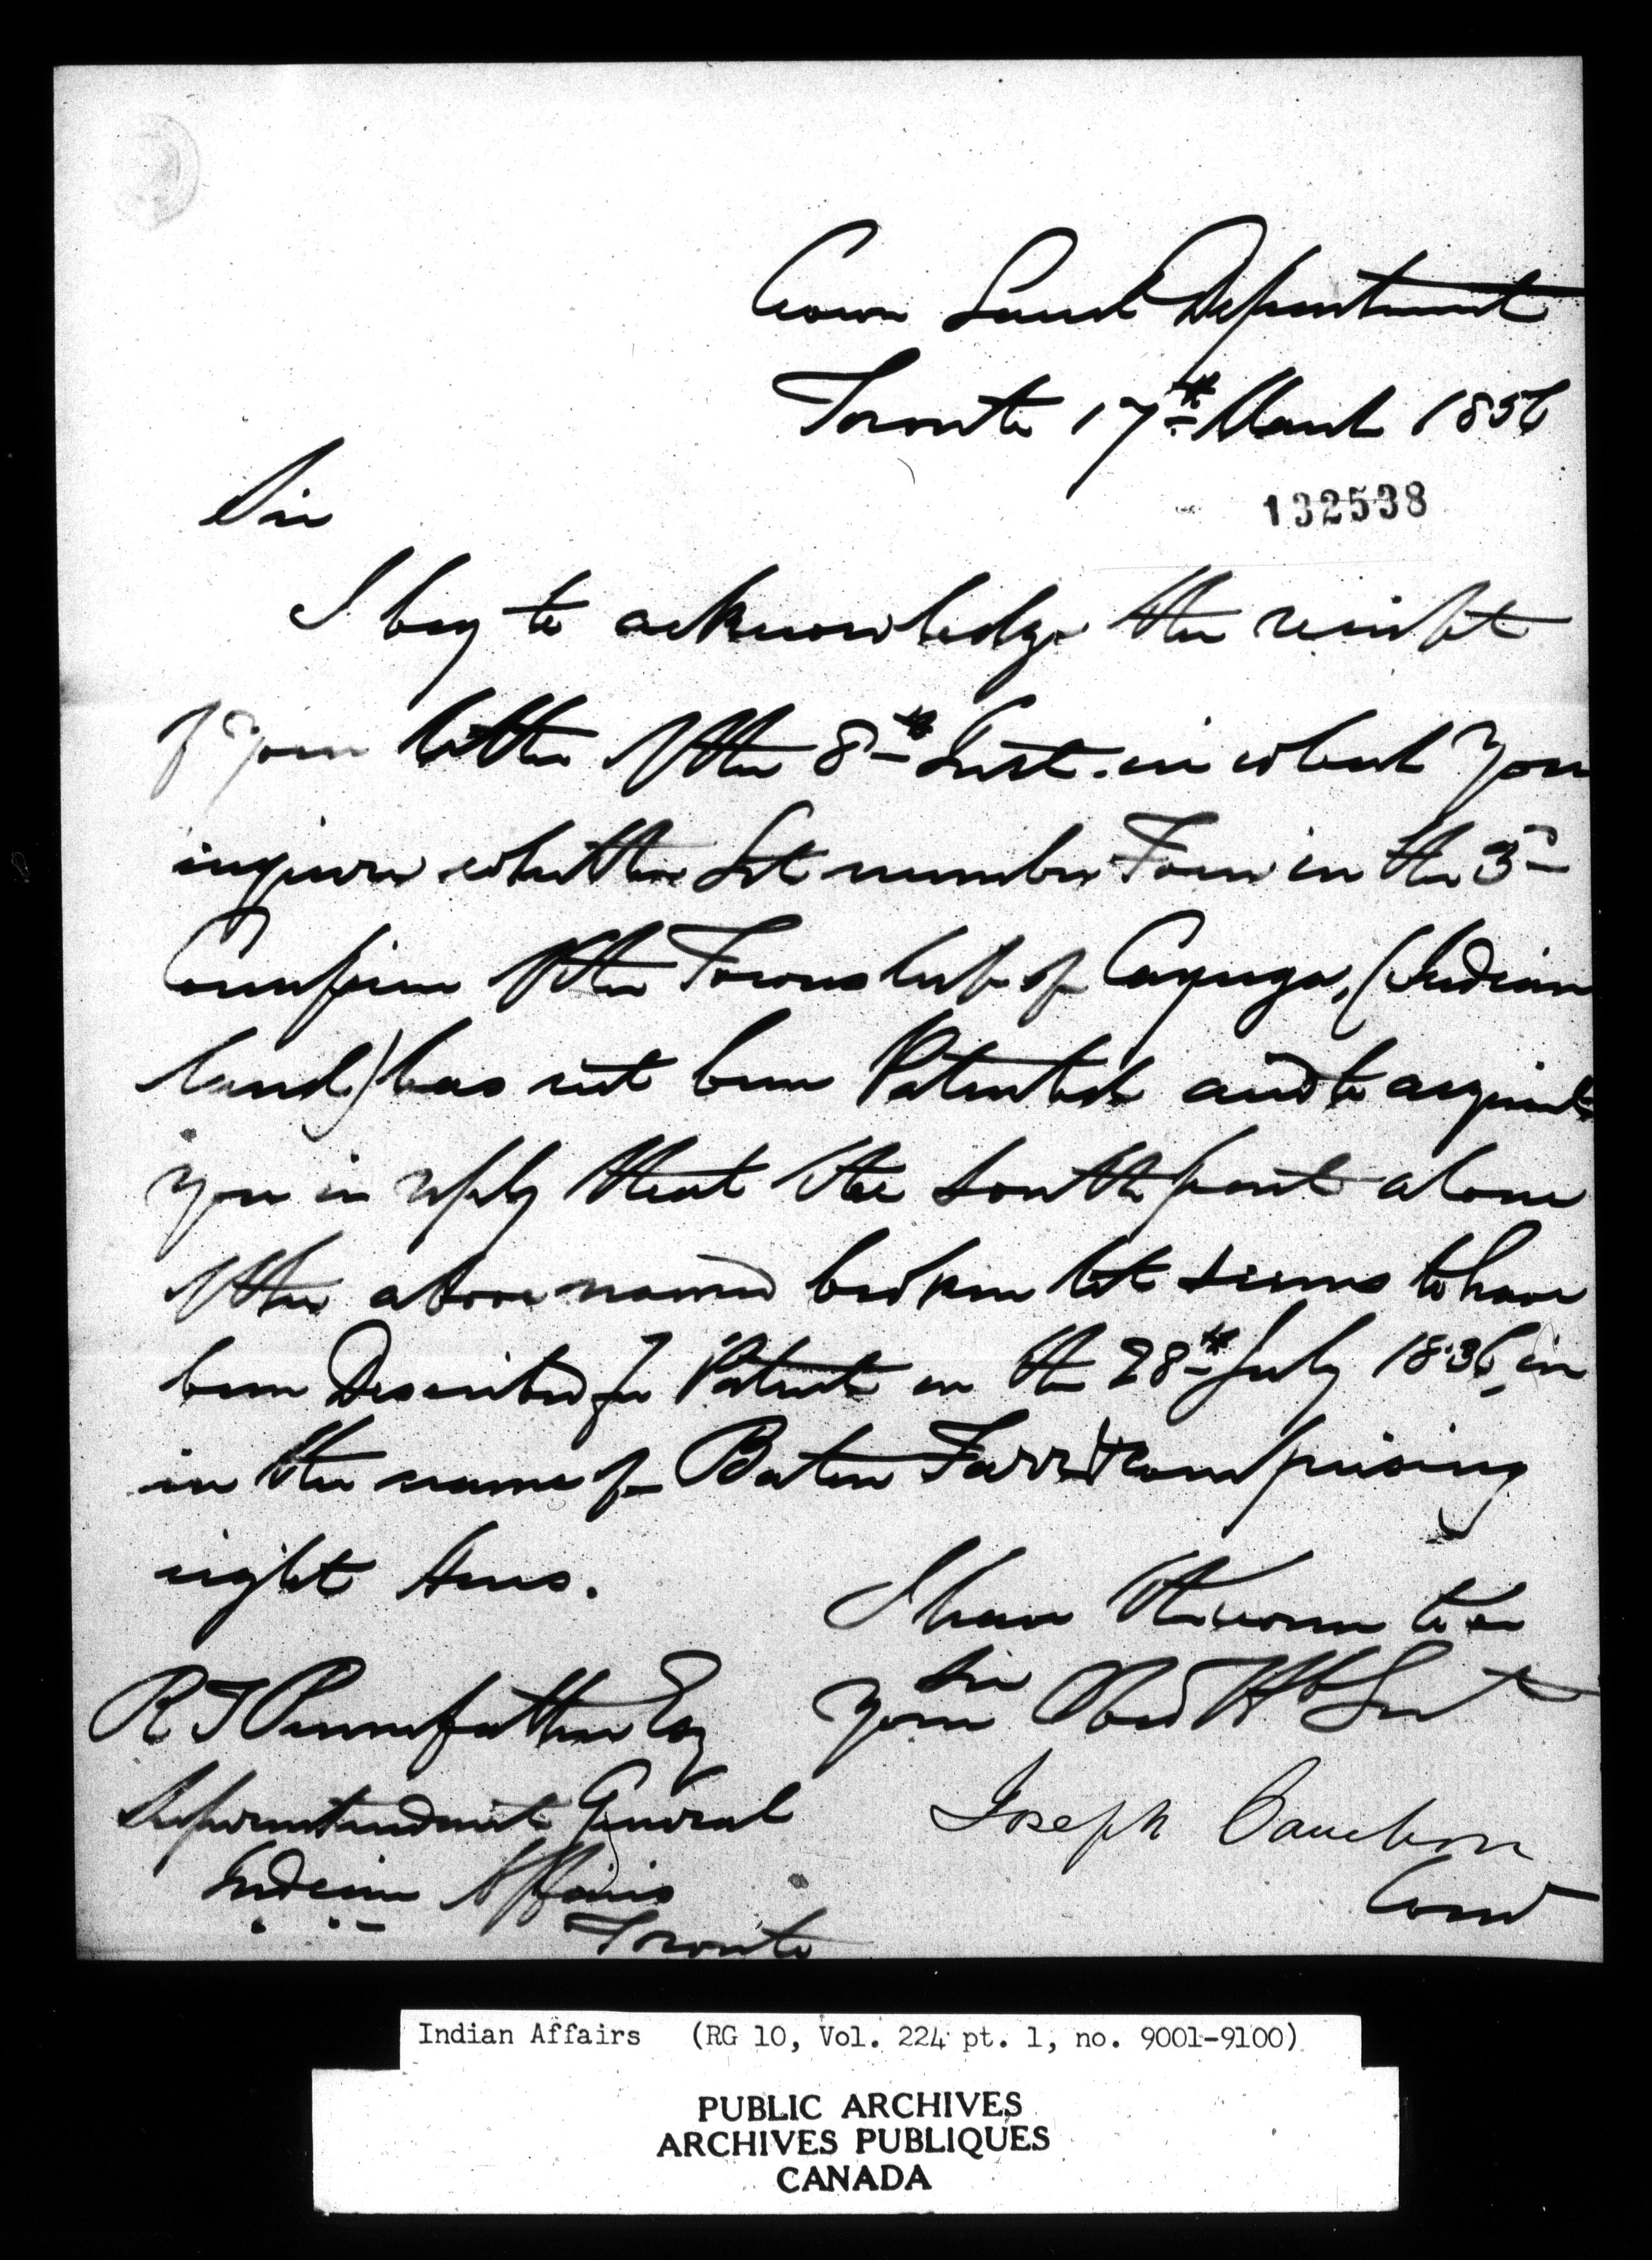 Crown Land Department
Toronto 17th March 1856
132538
Sir
I beg to acknowledge the receipt
of your letter of the 8th Inst. in which you
inquire whether Lot number Four in the 3d
Concession of the Township of Cayuga, (Indian
land) has not been Patented and to acquaint
you in reply that the south part alone
of the above named broken lot seems to have
been Described for Patent on the 28th July 1836, in
in the name of Farr & comprising
eight Acres.
I have the honor to be
Sir
Your Obed Hb Svt
R T Pennefather Esq
Superintendent General
Indian Affairs
Toronto
Joseph Cauchon
Comr
Indian Affairs (RG 10, Vol. 224 pt. 1, no. 9001-9100)
PUBLIC ARCHIVES
ARCHIVES PUBLIQUES
CANADA